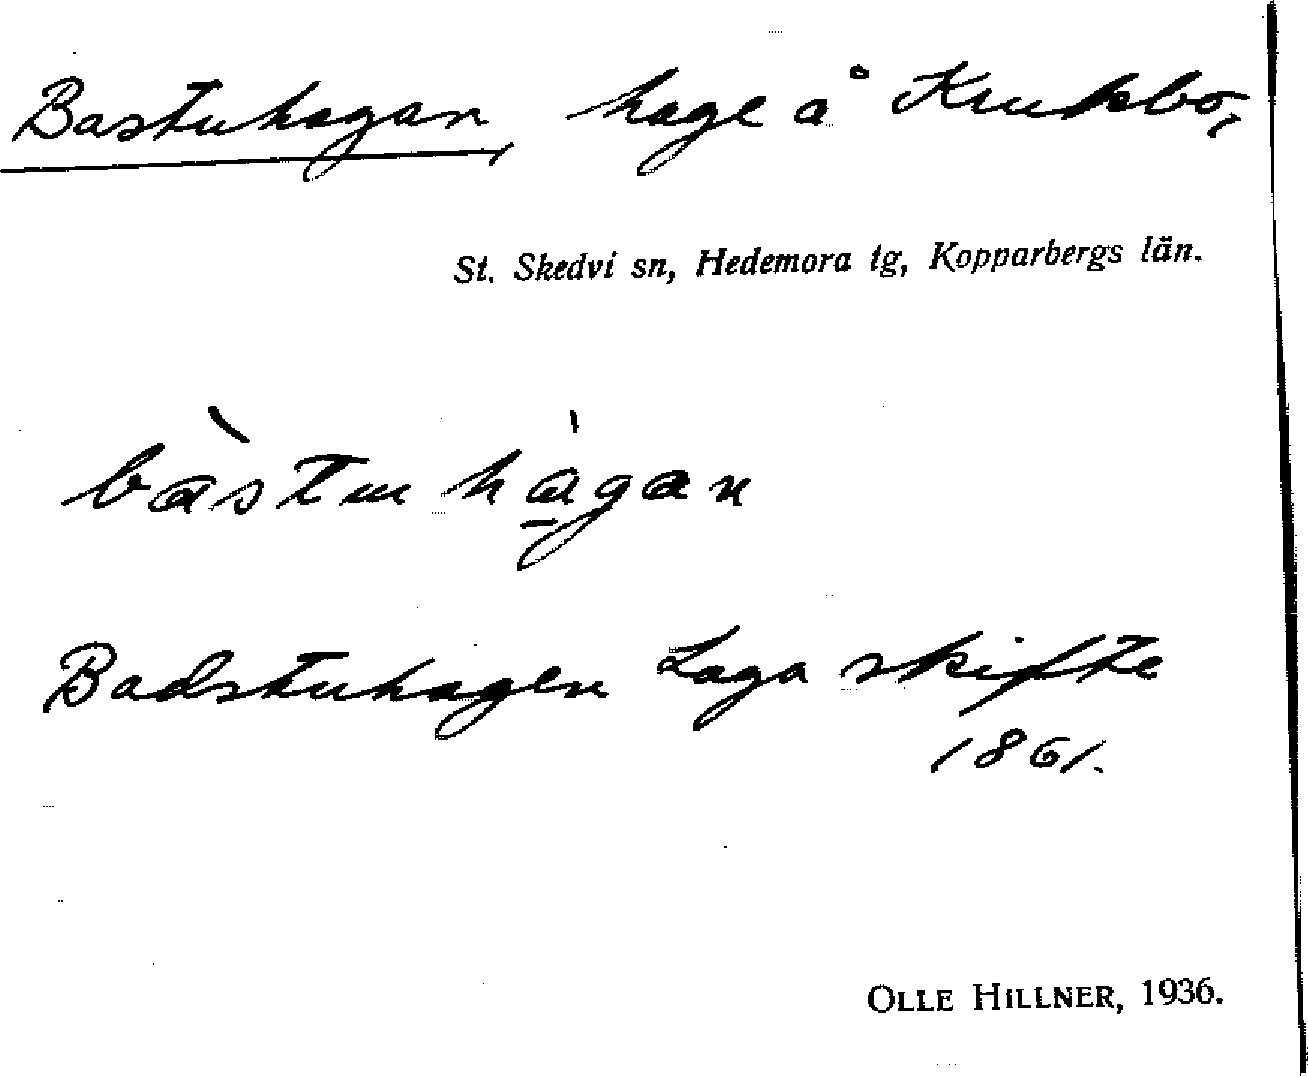 Bastuhagan, hage å Krukbo,
St. Skedvi sn, Hedemora tg, Kopparbergs län.
bàstuhágan
Badstuhagen Laga skifte
1861.
OLLE HILLNER, 1936.